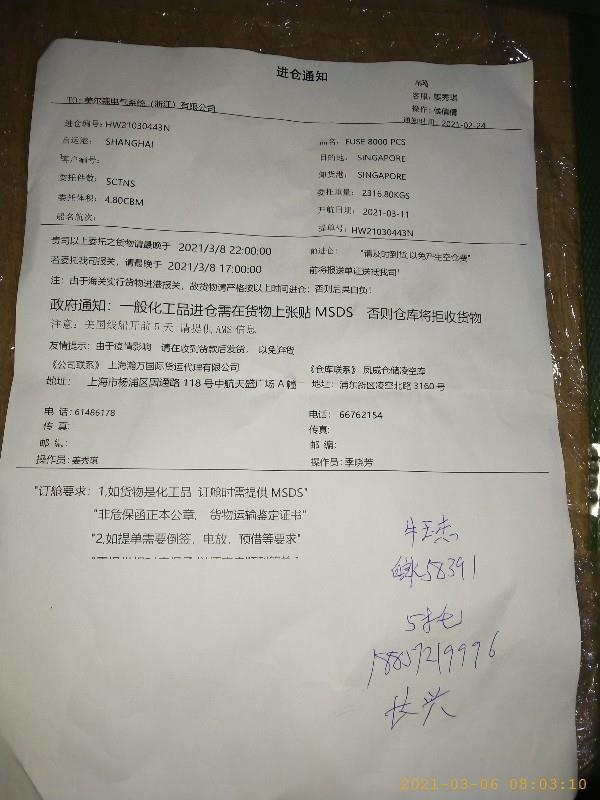 进仓通知
客服: 姜秀琪
TO: 美尔森电气系统（浙江）有限公司
操作: 侯倩倩
通知时间: 2021-02-24
进仓编号: HW21030443N
品名: FUSE 8000 PCS
启运港: SHANGHAI
目的地: SINGAPORE
客户编号:
卸货港: SINGAPORE
委托件数: 5CTNS
委托重量: 2316.80KGS
委托体积: 4.80CBM
开航日期: 2021-03-11
船名航次:
提单号: HW21030443N
贵司以上委托之货物请最晚于 2021/3/8 22:00:00
前进仓: "请及时到货以免产生空仓费"
若委托我司报关，请最晚于 2021/3/8 17:00:00
前将报送单证送抵我司!
注: 由于海关实行货物进港报关，故货物请严格按以上时间进仓; 否则后果自负!
政府通知: 一般化工品进仓需在货物上张贴 MSDS 否则仓库将拒收货物
注意: 美国线船开前 5 天 请提供 AMS 信息
友情提示: 由于疫情影响 请在收到货款后发货， 以免弃货
《公司联系》 上海瀚万国际货运代理有限公司
《仓库联系》 凤威仓储凌空库
地址: 上海市杨浦区国通路 118 号中航天盛广场 A 幢
地址: 浦东新区凌空北路 3160 号
电 话: 61486178
电话: 66762154
传 真:
传真:
邮 编:
邮 编:
操作员: 姜秀琪
操作员: 季晓芳
"订舱要求: 1,如货物是化工品 订舱时需提供 MSDS"
"非危保函正本公章， 货物运输鉴定证书"
"2,如提单需要倒签，电放，预借等要求"
牛玉杰
58391
5托
15857219996
长兴
2021-03-06 08:03:10